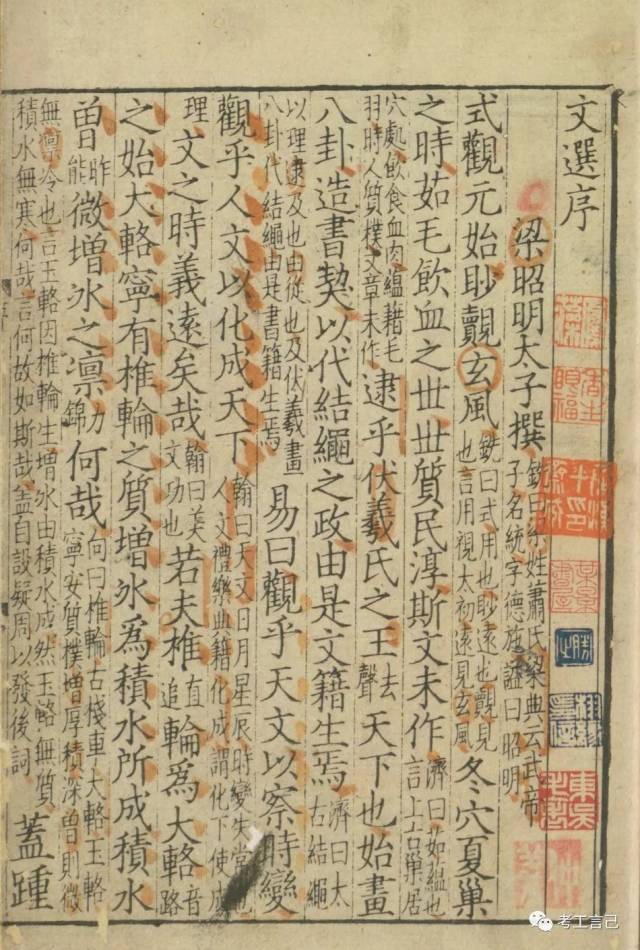 文選序
梁昭明太子撰 銑曰梁姓蕭氏梁典云武帝子名統字德施謚曰昭明
式觀元始眇覿玄風 銑曰式用也眇遠也覿見也言用視太初遠見玄風 冬穴夏巢
之時茹毛飲血之世世質民淳斯文未作 濟曰茹緼也言上古巢居
穴處飲食血肉緼藉毛羽時人質樸文章未作 逮乎伏羲氏之王 去聲 天下也始畫
八卦造書契以代結繩之政由是文籍生焉 濟曰太古結繩
以理逮及也由從也及伏羲畫八卦代結繩由是書籍生焉 易曰觀乎天文以察時變
觀乎人文以化成天下 翰曰天文日月星辰時變失常也人文禮樂典籍化成謂化下使成
理 文之時義遠矣哉 翰曰美文功也 若夫椎 直追 輪爲大輅 音路
之始大輅寧有椎輪之質增冰爲積水所成積水
曽 昨能 微增冰之凛 力錦 何哉 向曰椎輪古棧車大輅玉輅寧安質樸增厚積深曽則微
無凛冷也言玉輅因椎輪生增冰由積水成然玉輅無質積水無寒何哉言何故如斯哉蓋自設疑周以發後詞 蓋踵
考工言己